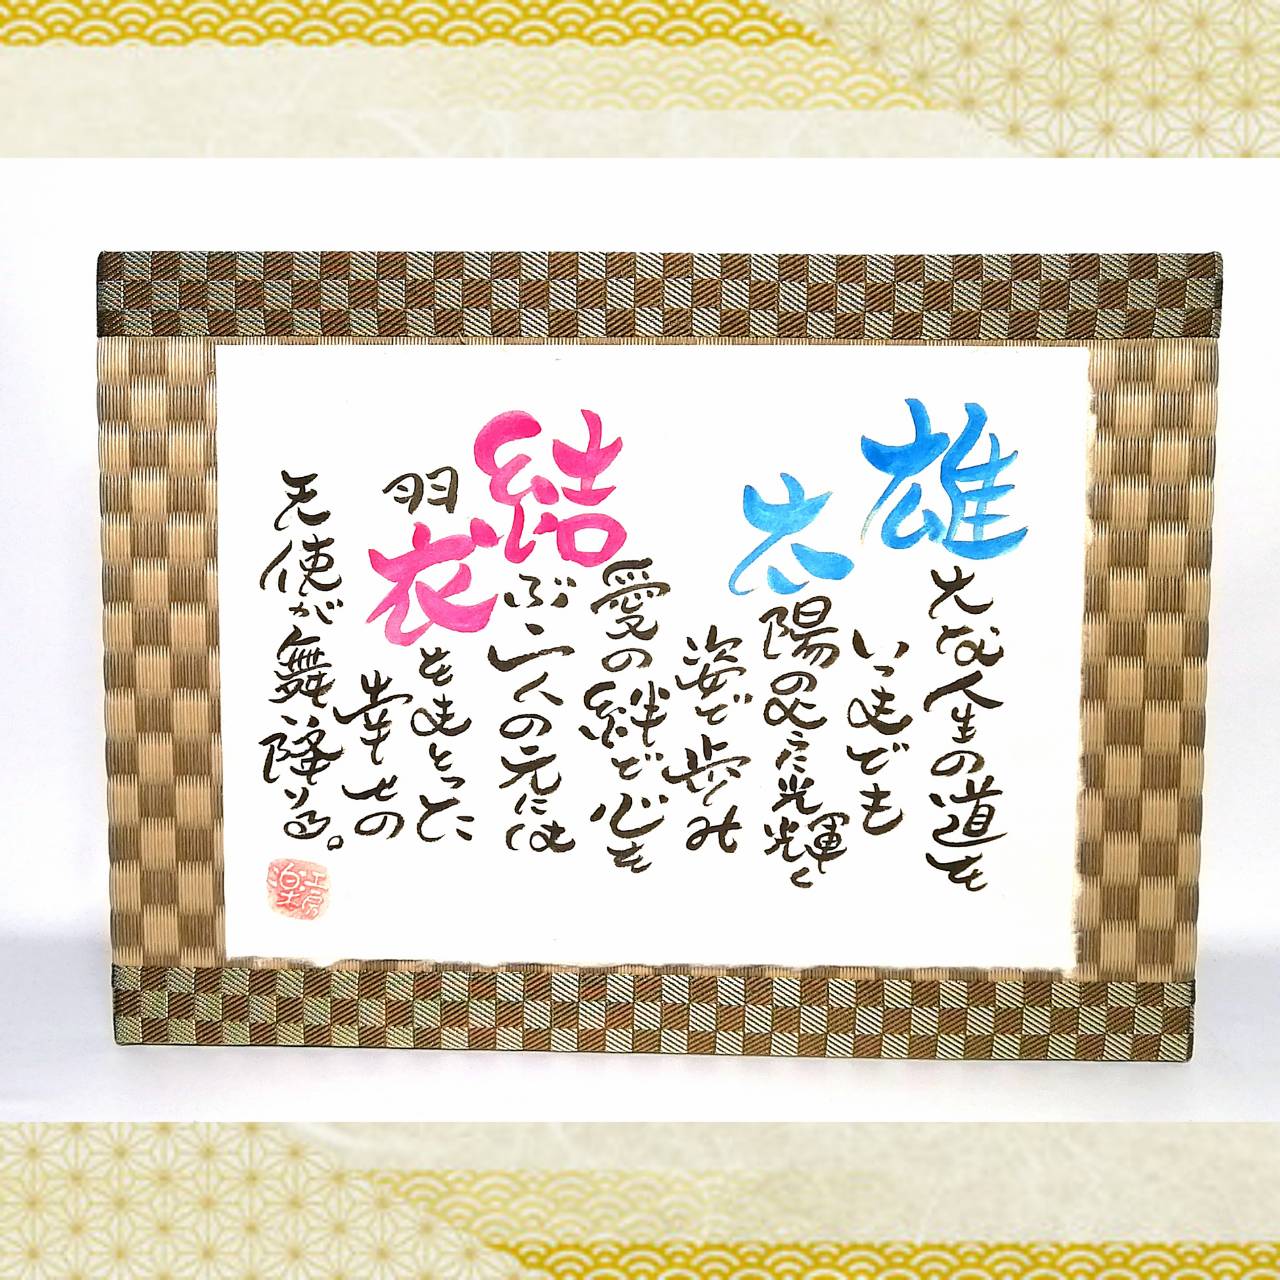 雄大な人生の道を
いつまでも
太陽の心に光輝く
姿で歩み
愛の絆で心を
結ぶ二人の元には
羽衣をまとった
幸せの
天使が舞い降りる。
工房
楽